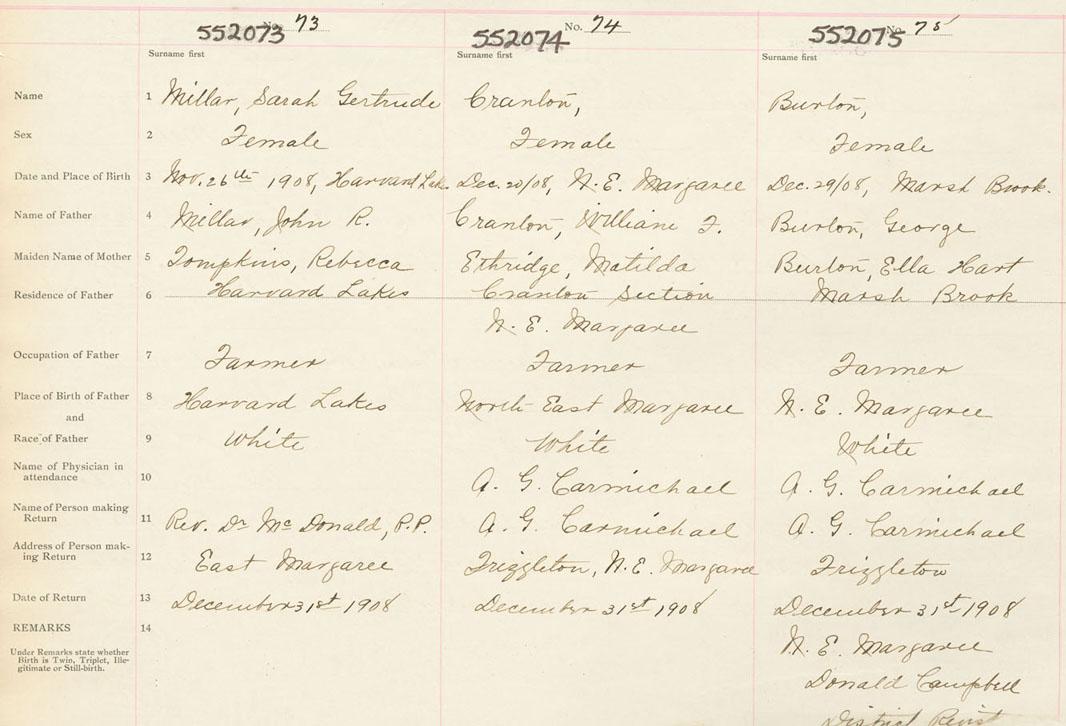 552073 No. 73
552074 No. 74
552075 No. 75
Surname first Surname first Surname first
Name 1 Millar, Sarah Gertrude Cranton, Burton,
Sex 2 Female Female Female
Date and Place of Birth 3 Nov. 26th 1908, Harvard Lak. Dec. 20/08, N. E. Margaree Dec. 29/08, Marsh Brook.
Name of Father 4 Millar, John R. Cranton, William F. Burton, George
Maiden Name of Mother 5 Tompkins, Rebecca Ethridge, Matilda Burton, Ella Hart
Residence of Father 6 Harvard Lakes Cranton Section Marsh Brook
N. E. Margaree
Occupation of Father 7 Farmer Farmer Farmer
Place of Birth of Father 8 Harvard Lakes North East Margaree N. E. Margaree
and
Race of Father 9 White White White
Name of Physician in
attendance 10 A. G. Carmichael A. G. Carmichael
Name of Person making
Return 11 Rev. Dr McDonald, P.P. A. G. Carmichael A. G. Carmichael
Address of Person mak-
ing Return 12 East Margaree Frizzleton, N. E. Margaree Frizzleton
Date of Return 13 December 31st 1908 December 31st 1908 December 31st 1908
REMARKS 14 N. E. Margaree
Under Remarks state whether
Birth is Twin, Triplet, Ille-
gitimate or Still-birth.
Donald Campbell
District Regist